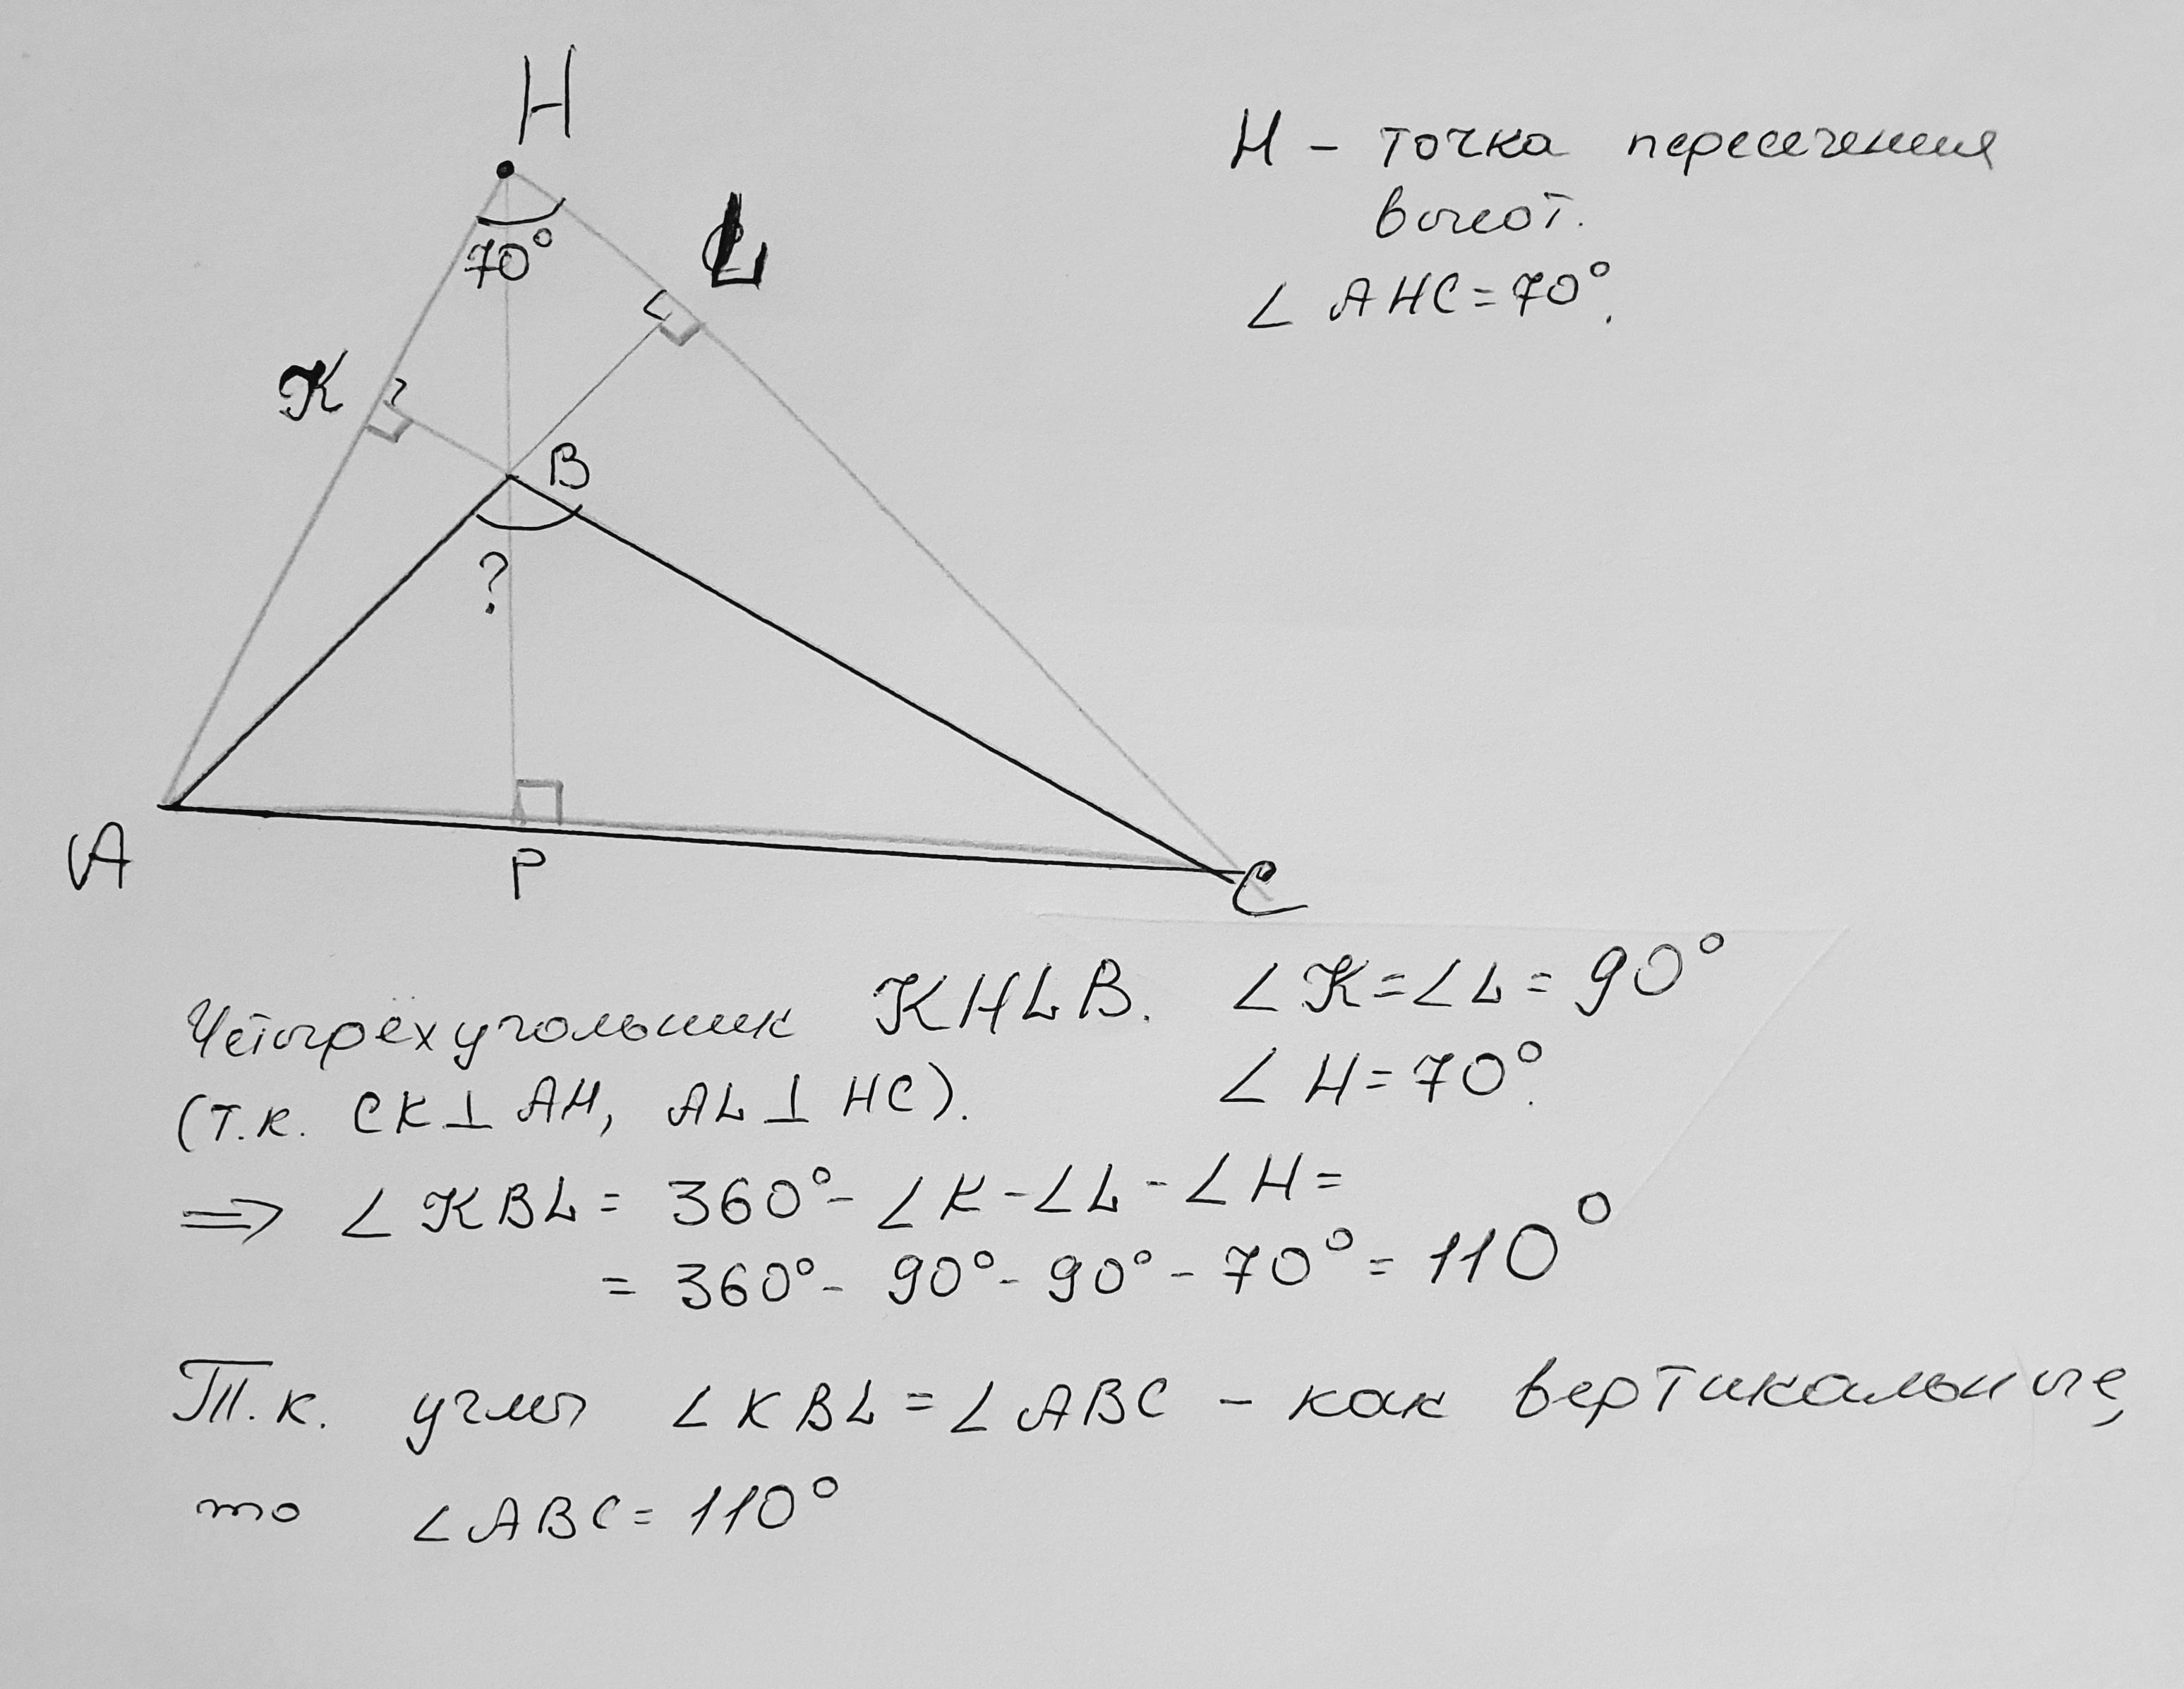 H
70°
L
K
B
?
A
P
C
H – точка пересечения
высот.
∠ AHC = 70°.
Четырёхугольник KHLB. ∠ K = ∠ L = 90°
(т.к. CK ⊥ AH, AL ⊥ HC). ∠ H = 70°.
⇒ ∠ KBL = 360° - ∠ K - ∠ L - ∠ H =
= 360° - 90° - 90° - 70° = 110°
Т.к. углы ∠ KBL = ∠ ABC – как вертикальные,
то ∠ ABC = 110°